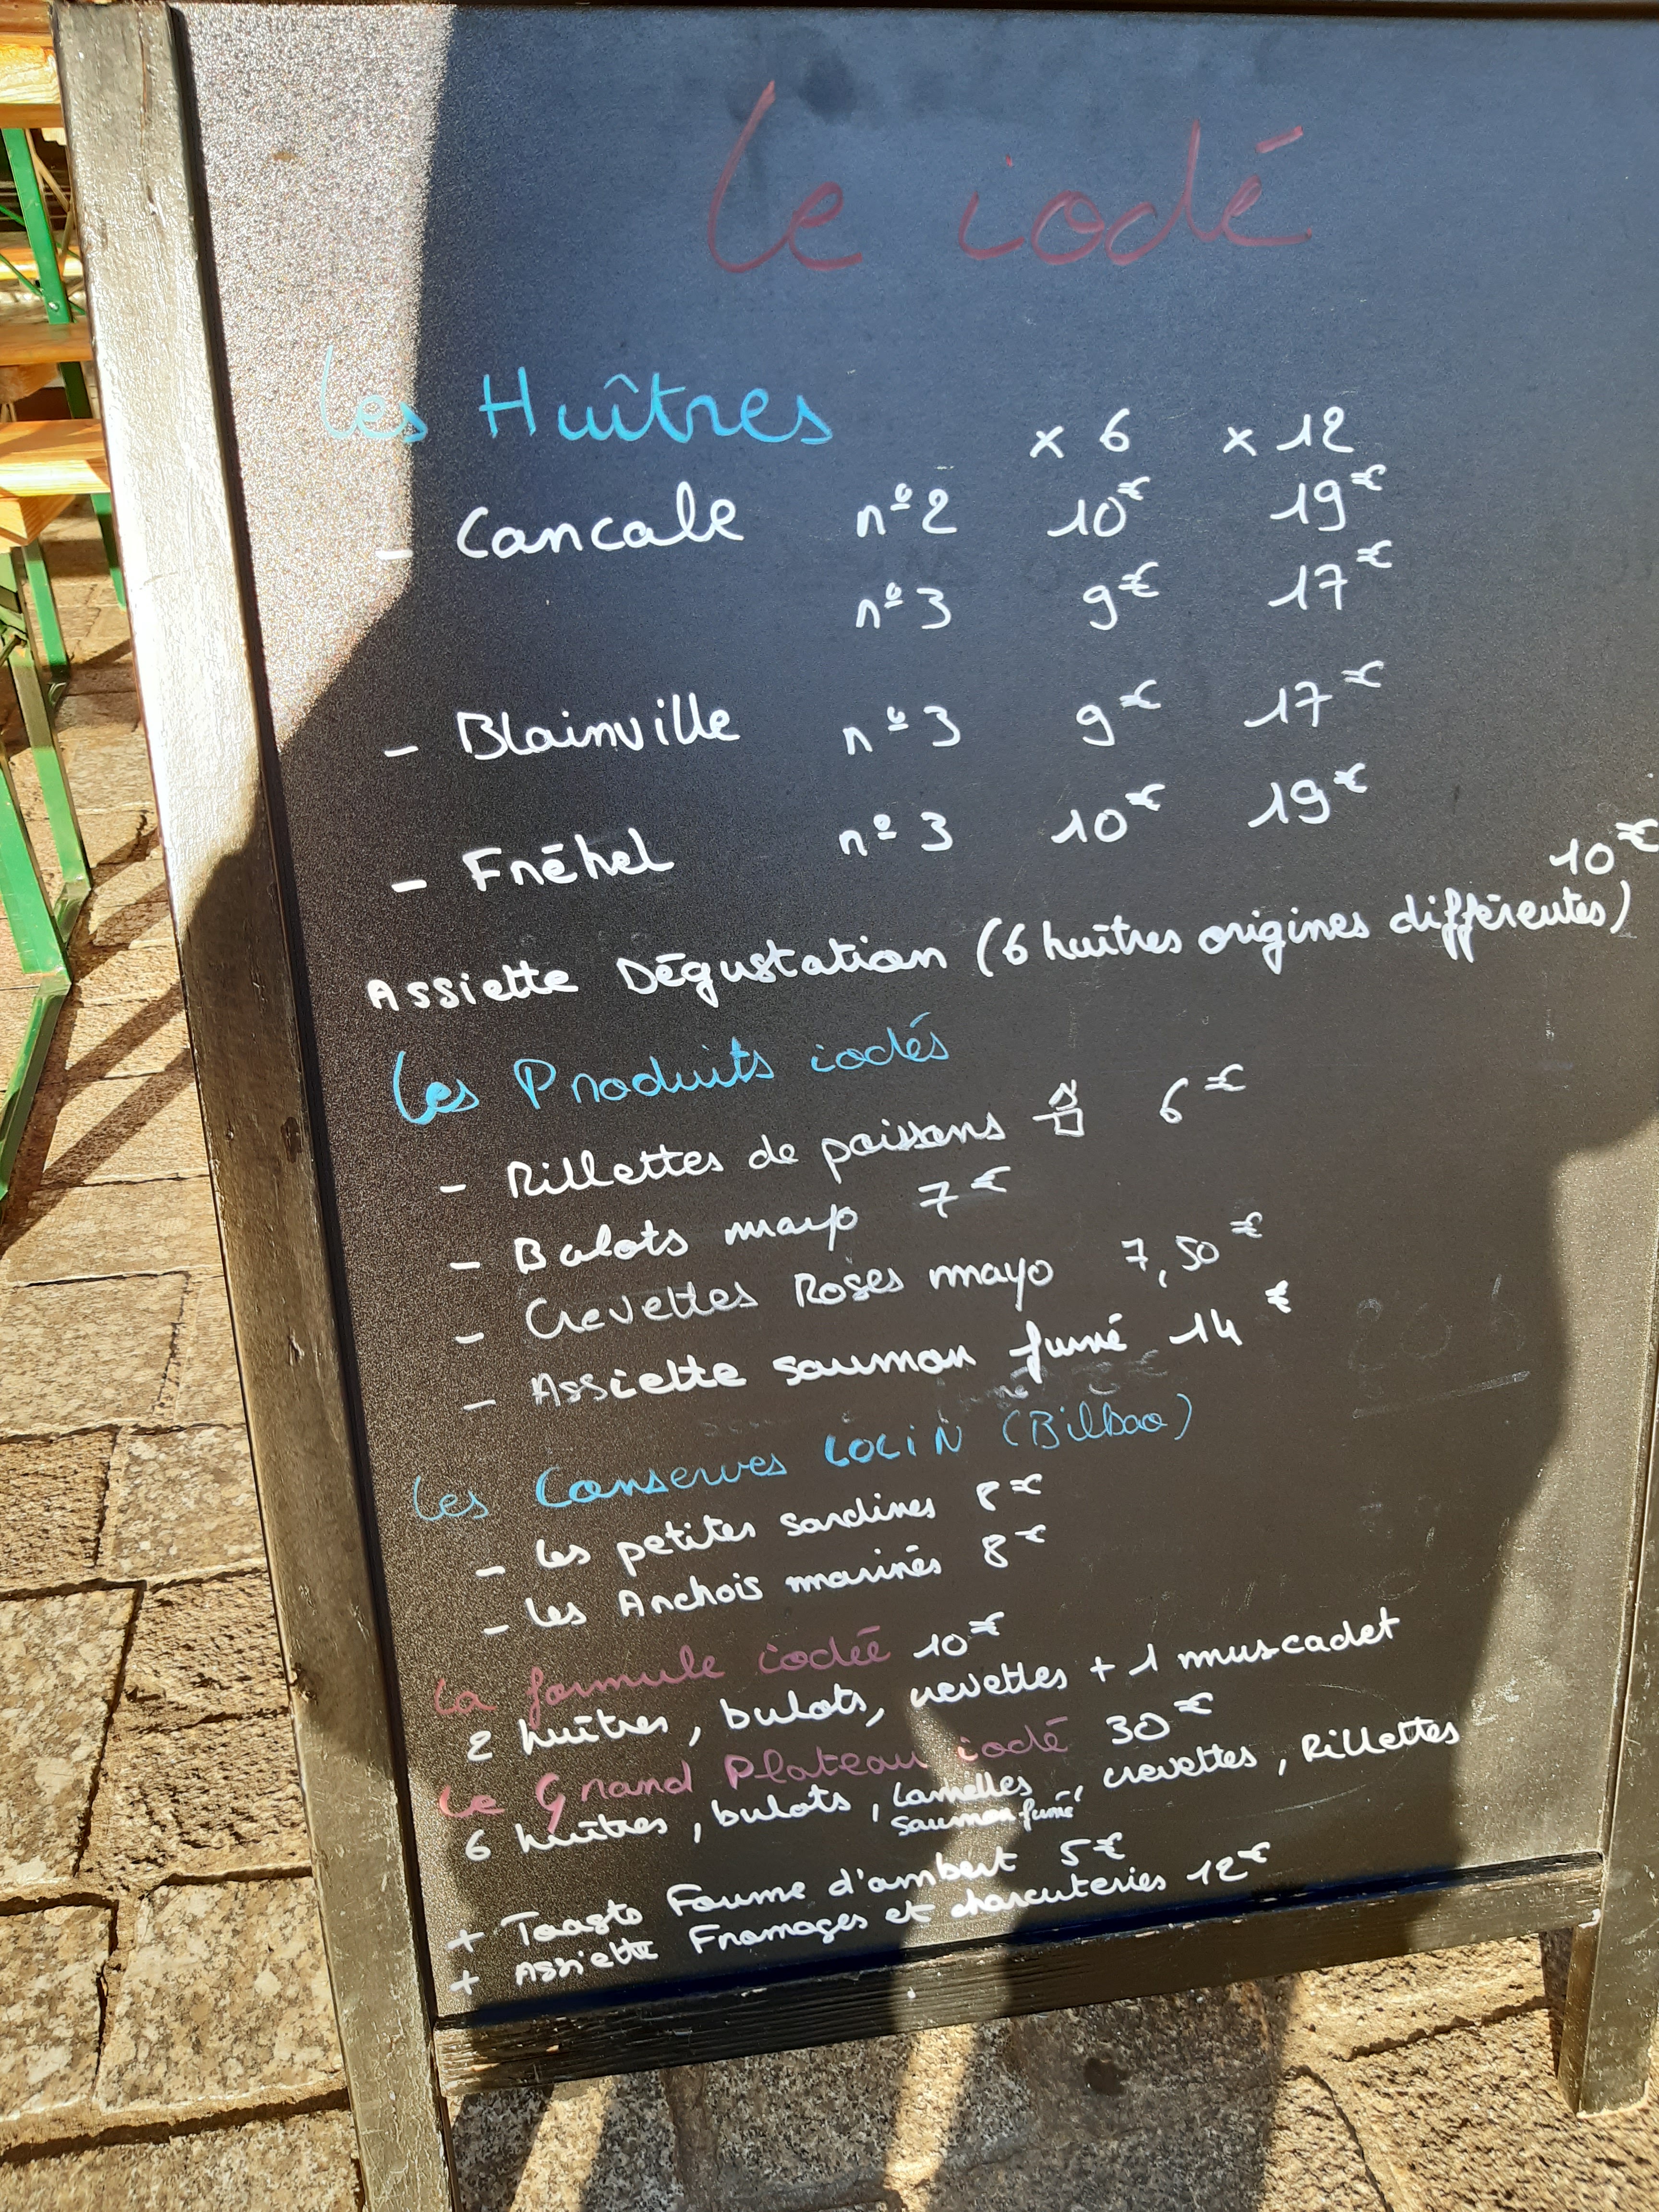 Le iodé
Les Huîtres x 6 x 12
- Cancale n°2 10€ 19€
n°3 9€ 17€
- Blainville n°3 9€ 17€
- Fréhel n°3 10€ 19€
10€
Assiette Dégustation (6 huîtres origines différentes)
Les Produits iodés
- Rillettes de poissons 6€
- Bulots mayo 7€
- Crevettes Roses mayo 7,50€
- Assiette saumon fumé 14€
Les Conserves (Bilbao)
- Les petites sardines 8€
- Les Anchois marinés 8€
La formule iodée 10€
2 huîtres, bulots, crevettes + 1 muscadet
Le Grand Plateau iodé 30€
6 huîtres, bulots, Lamelles, crevettes, Rillettes
saumon fumé
+ Toasts Fourme d'ambert 5€
+ Assiette Fromages et charcuteries 12€